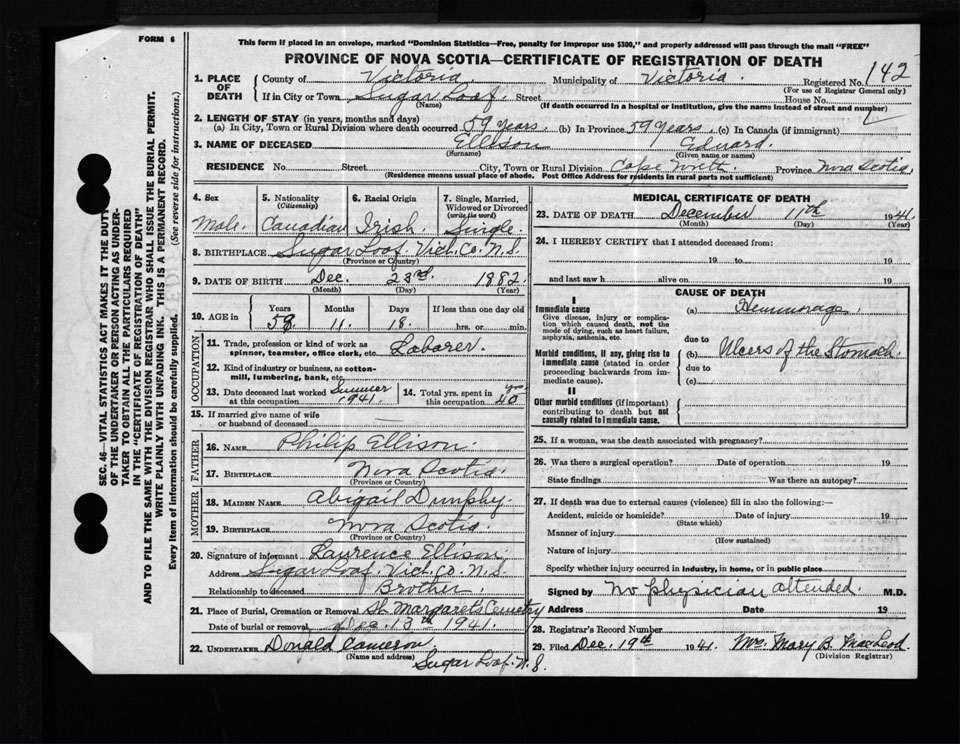 FORM 6
This form if placed in an envelope, marked "Dominion Statistics—Free, penalty for improper use $300," and properly addressed will pass through the mail "FREE"
PROVINCE OF NOVA SCOTIA—CERTIFICATE OF REGISTRATION OF DEATH
1. PLACE OF DEATH County of Victoria Municipality of Victoria. Registered No. 142
(For use of Registrar General only)
If in City or Town Sugar Loaf. Street House No.
(Name) (If death occurred in a hospital or institution, give the name instead of street and number)
2. LENGTH OF STAY (in years, months and days)
(a) In City, Town or Rural Division where death occurred 59 years. (b) In Province 59 years. (c) In Canada (if immigrant)
3. NAME OF DECEASED Ellison Eduard.
(Surname) (Given name or names)
RESIDENCE No. Street City, Town or Rural Division Cape North. Province Nova Scotia.
(Residence means usual place of abode. Post Office Address for residents in rural parts not sufficient)
4. Sex 5. Nationality (Citizenship) 6. Racial Origin 7. Single, Married, Widowed or Divorced (write the word)
Male. Canadian Irish. Single.
8. BIRTHPLACE Sugar Loaf. Vict. Co. N.S.
(Province or Country)
9. DATE OF BIRTH Dec. 23rd. 1882.
(Month) (Day) (Year)
10. AGE in Years Months Days If less than one day old
58. 11. 18. hrs. or min.
OCCUPATION
11. Trade, profession or kind of work as spinner, teamster, office clerk, etc. Labarer.
12. Kind of industry or business, as cotton-mill, lumbering, bank, etc.
13. Date deceased last worked at this occupation Summer 1941. 14. Total yrs. spent in this occupation 40 yrs.
15. If married give name of wife or husband of deceased
FATHER
16. NAME Philip Ellison.
17. BIRTHPLACE Nova Scotia.
(Province or Country)
MOTHER
18. MAIDEN NAME Abigail Dunphy.
19. BIRTHPLACE Nova Scotia.
(Province or Country)
20. Signature of informant Laurence Ellison.
Address Sugar Loaf. Vict. Co. N.S.
Relationship to deceased Brother.
21. Place of Burial, Cremation or Removal St. Margarets Cemetry
Date of burial or removal Dec. 13th. 1941.
22. UNDERTAKER Donald Cameron
(Name and address) Sugar Loaf. N.S.
MEDICAL CERTIFICATE OF DEATH
23. DATE OF DEATH December 11th 1941.
(Month) (Day) (Year)
24. I HEREBY CERTIFY that I attended deceased from:
19 to 19
and last saw h alive on 19
CAUSE OF DEATH
I
Immediate cause
Give disease, injury or complication which caused death, not the mode of dying, such as heart failure, asphyxia, asthenia, etc.
(a) Hemmorages
due to
Morbid conditions, if any, giving rise to immediate cause (stated in order proceeding backwards from immediate cause).
(b) Ulcers of the Stomach.
due to
(c)
II
Other morbid conditions (if important) contributing to death but not causally related to immediate cause.
25. If a woman, was the death associated with pregnancy?
26. Was there a surgical operation? Date of operation 19
State findings Was there an autopsy?
27. If death was due to external causes (violence) fill in also the following:—
Accident, suicide or homicide? Date of injury 19
(State which)
Manner of injury
(How sustained)
Nature of injury
Specify whether injury occurred in industry, in home, or in public place
Signed by No physician attended. M.D.
Address Date 19
28. Registrar's Record Number
29. Filed Dec. 19th 1941. Mrs. Mary B. MacLeod.
(Division Registrar)
SEC. 46—VITAL STATISTICS ACT MAKES IT THE DUTY
OF THE UNDERTAKER OR PERSON ACTING AS UNDER-
TAKER TO OBTAIN ALL THE PARTICULARS REQUIRED
IN THE "CERTIFICATE OF REGISTRATION OF DEATH"
AND TO FILE THE SAME WITH THE DIVISION REGISTRAR WHO SHALL ISSUE THE BURIAL PERMIT.
WRITE PLAINLY WITH UNFADING INK. THIS IS A PERMANENT RECORD.
Every item of information should be carefully supplied. (See reverse side for instructions.)